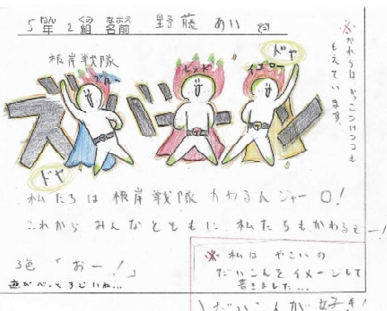 5年2組 名前 野藤 あい
ねん くみ なまえ
※かれらはかっこつけつつも、
もえています。
根岸戦隊
ブルー
レッド
イエロー
ドヤ
ズバーン
ドヤ
私たちは根岸戦隊かわるんジャーロ!
これからみんなとともに、私たちもかわるぞー!
3色「おー!」
※私はやさいの
だいこんをイメージして
書きました…
だいこんが好き!